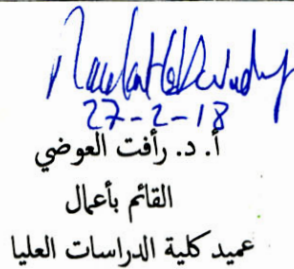 27-2-18
أ. د. رأفت العوضي
القائم بأعمال
عميد كلية الدراسات العليا